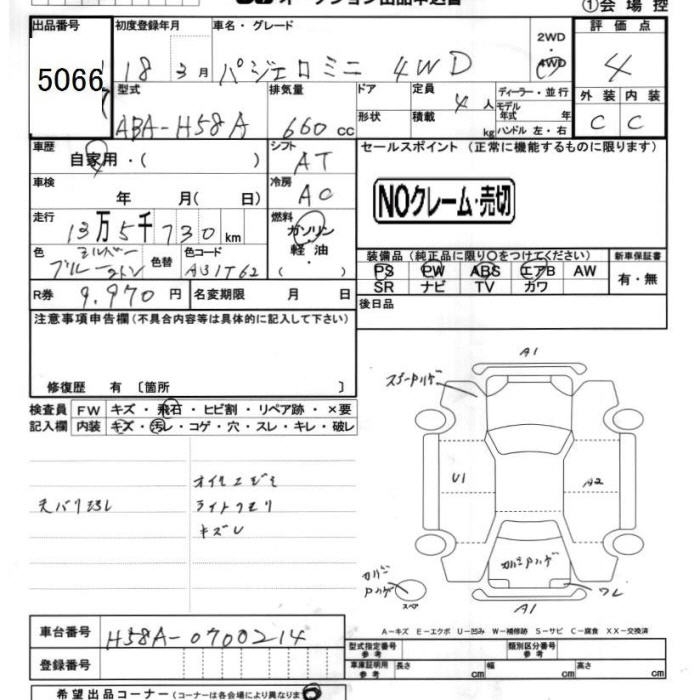 オークション出品申込書
①会場控
出品番号
5066
初度登録年月
18 3月
車名・グレード
パジェロミニ 4WD
2WD
・
4WD
評価点
4
型式
ABA-H58A
排気量
660 cc
ドア
形状
定員
4人
積載
kg
ディーラー・並行
モデル
年式 年
ハンドル 左・右
外装 内装
C C
車歴
自家用・( )
シフト
AT
セールスポイント(正常に機能するものに限ります)
NOクレーム・売切
車検
年 月( 日)
冷房
AC
走行
13万5千730km
燃料
ガソリン
軽油
・
( )
色
シルバー
ブルー 2トン
色替
色コード
A31T62
装備品(純正品に限り○をつけてください)
新車保証書
PS PW ABS エアB AW
SR ナビ TV カワ
有・無
R券
9,970円
名変期限 月 日
後日品
注意事項申告欄(不具合内容等は具体的に記入して下さい)
修復歴 有〔箇所 〕
検査員
記入欄
FW キズ・飛石・ヒビ割・リペア跡・×要
内装 キズ・汚レ・コゲ・穴・スレ・キレ・破レ
天バリヨゴレ
オイルニジミ
ライトクモリ
キズU
A1
U1
A2
ワレ
A1
スペア
A-キズ E-エクボ U-凹み W-補修跡 S-サビ C-腐食 XX-交換済
車台番号
H58A-0700214
登録番号
型式指定番号
参考
類別区分番号
参考
車庫証明用
参考
長さ cm 幅 cm 高さ cm
希望出品コーナー(コーナーは各会場により異なりま